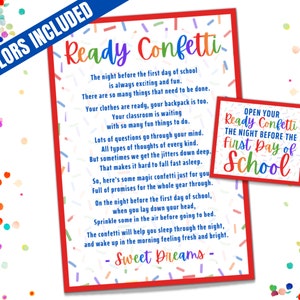 LORS INCLUDED
Ready Confetti
The night before the first day of school
is always exciting and fun.
There are so many things that need to be done.
Your clothes are ready, your backpack is too.
Your classroom is waiting
with so many fun things to do.
Lots of questions go through your mind.
All types of thoughts of every kind.
But sometimes we get the jitters down deep,
That makes it hard to fall fast asleep.
So, here's some magic confetti just for you
Full of promises for the whole year through.
On the night before the first day of school,
when you lay down your head,
Sprinkle some in the air before going to bed.
The confetti will help you sleep through the night,
and wake up in the morning feeling fresh and bright.
- Sweet Dreams -
OPEN YOUR
Ready Confetti
THE NIGHT BEFORE THE
First Day of
School